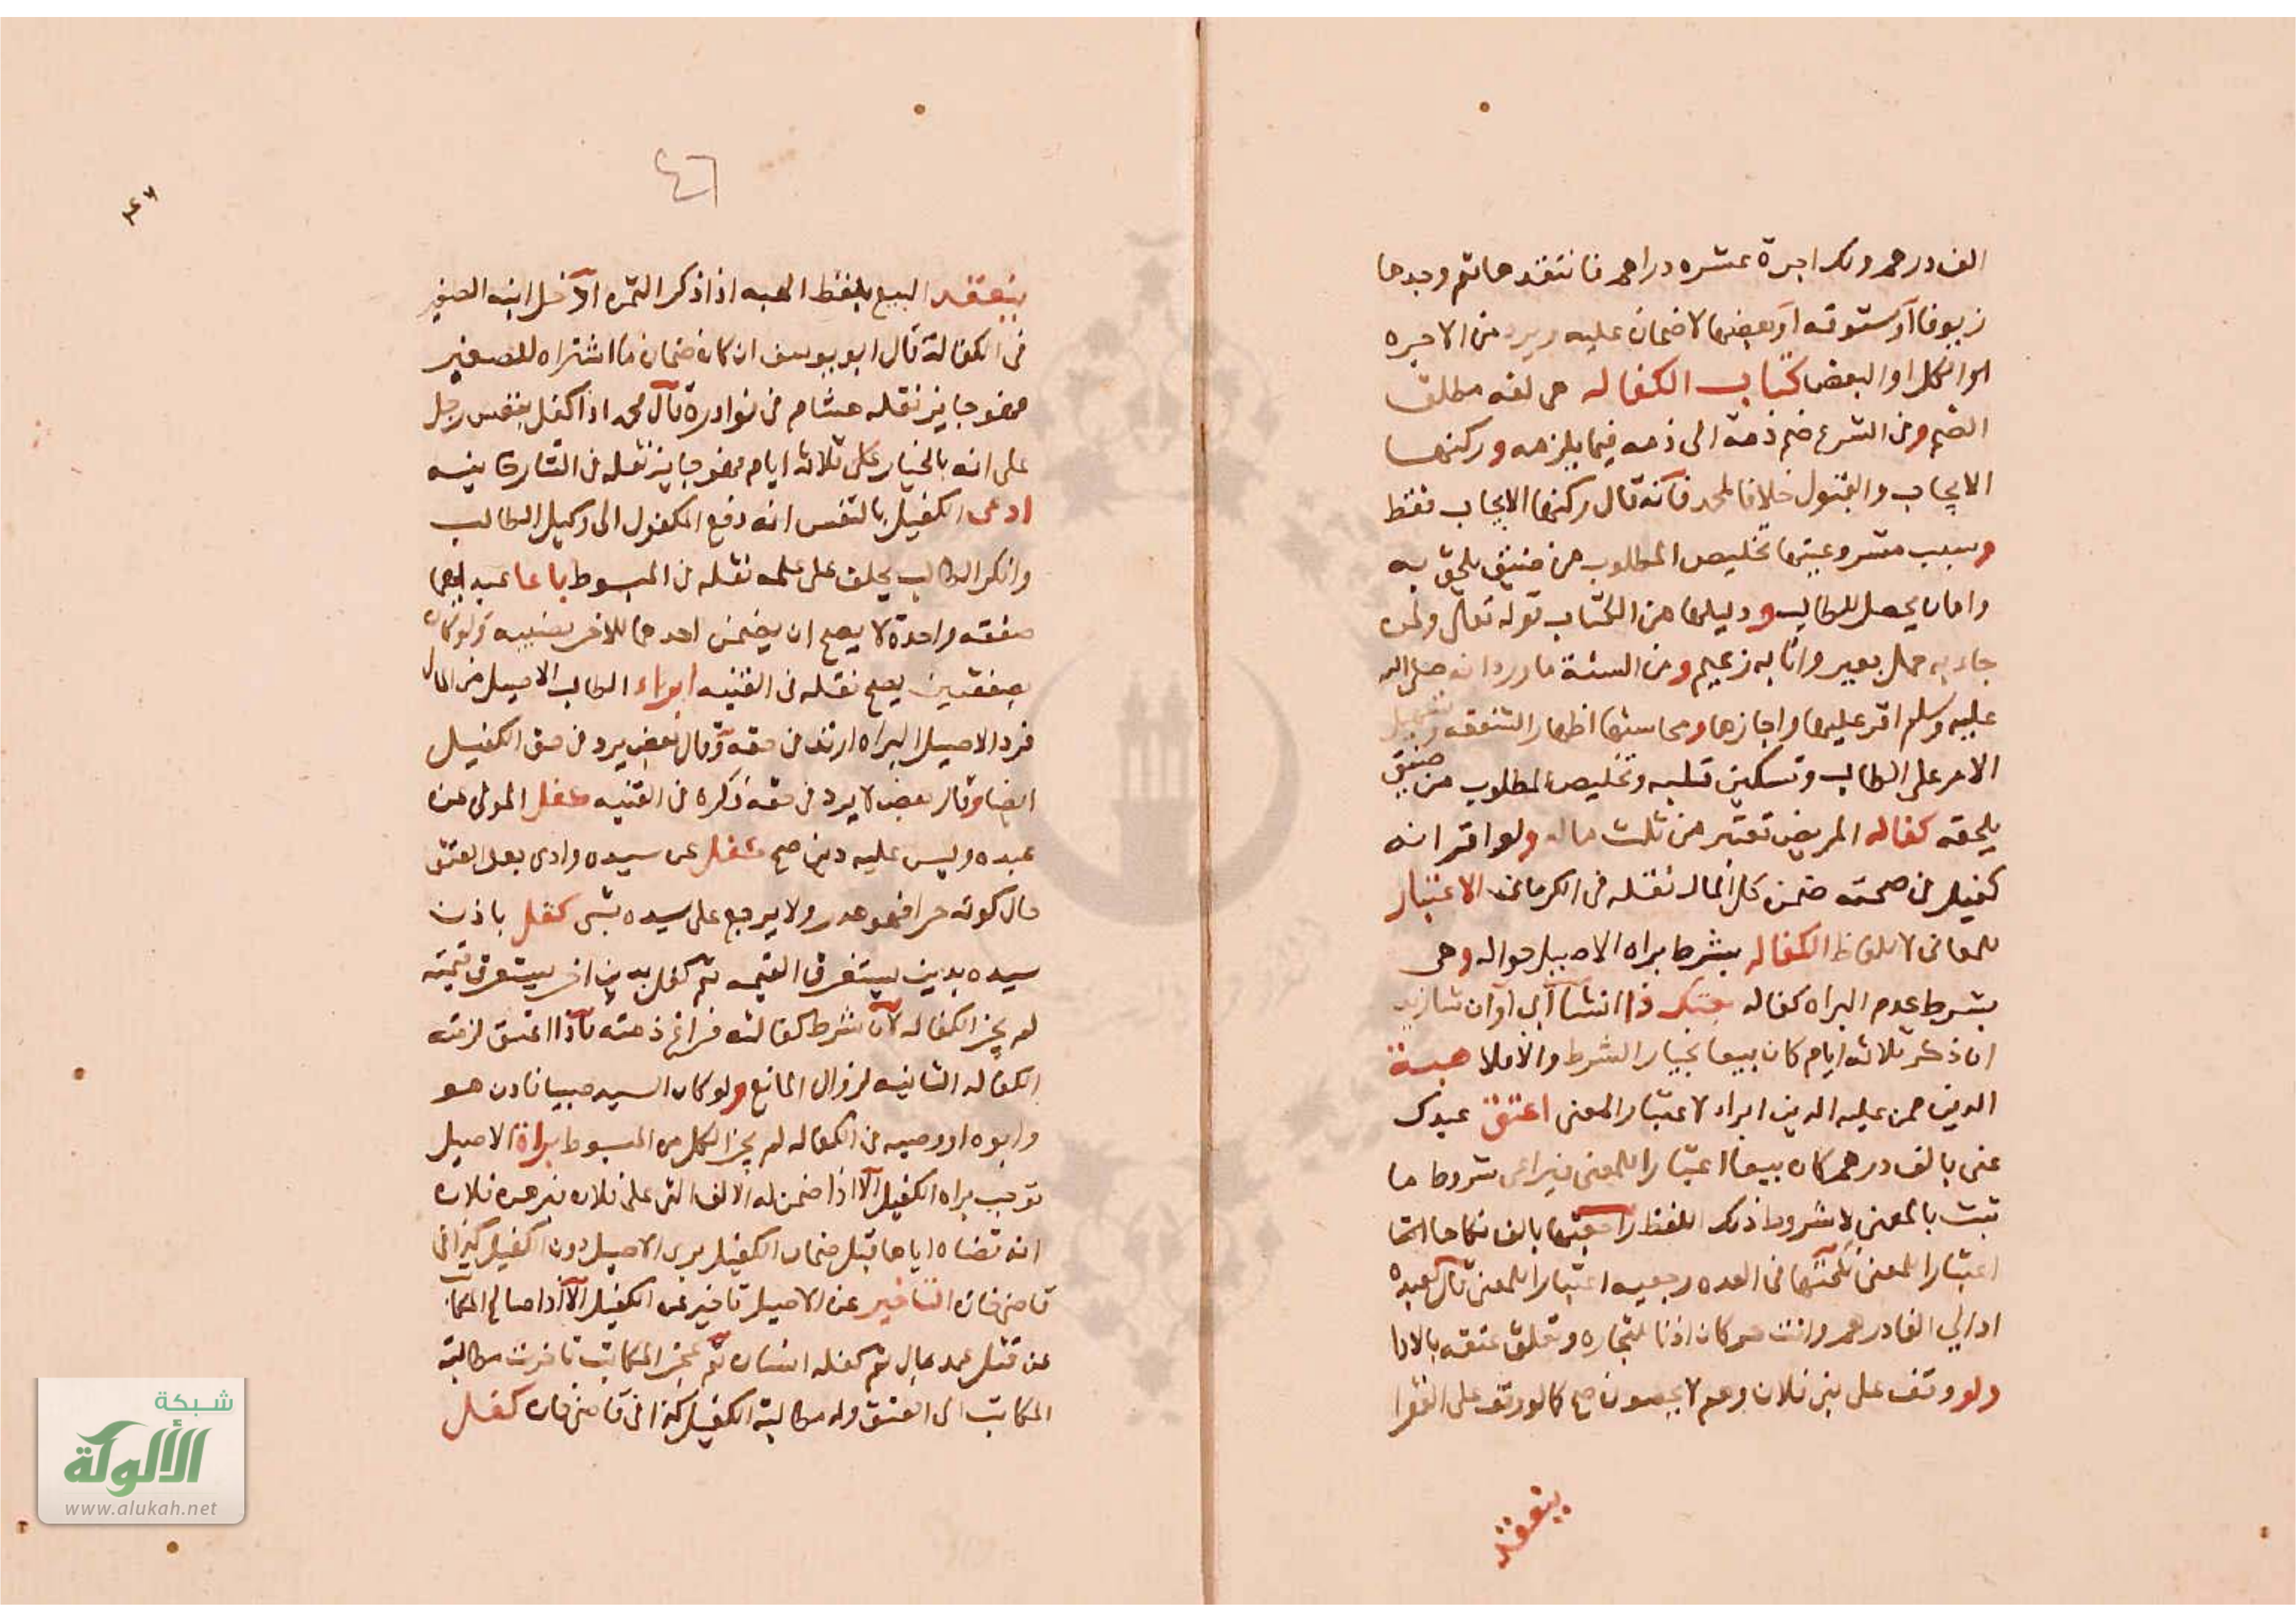 الف درهم ولك اجرة عشره دراهم فانتقدها ثم وجدها
زيوفا او ستوقه او بعضها لا ضمان عليه ويرد من الاجره
الكل او البعض كتاب الكفاله هى لغه مطلق
الضم وفى الشرع ضم ذمة الى ذمه فيما يلزمه وركنها
الايجاب والقبول خلافا لمحمد فانه قال ركنها الايجاب فقط
وسبب مشروعيتها تخليص المطلوب من ضيق يلحق به
وامان يحصل للطالب ودليلها من الكتاب قوله تعالى ولمن
جاء به حمل بعير وانا به زعيم ومن السنة ما ورد انه صلى الله
عليه وسلم اقر عليها واجازها ومحاسنها اظهار الشفقه وتسهيل
الامر على الطالب وتسكين قلبه وتخليص المطلوب من ضيق
يلحقه كفاله المريض تعتبر من ثلث ماله ولو اقر انه
كفيل فى صحته ضمن كل المال نقله فى الكرمانى الاعتبار
للمعانى لا للالفاظ الكفاله بشرط براه الاصيل حواله وهى
بشرط عدم البراه كفاله بعتك ذا ان شا ابى او ان شا زيد
ان ذكر ثلاثه ايام كان بيعا بخيار الشرط والا فلا هبة
الدين ممن عليه الدين ابراء لاعتبار المعنى اعتق عبدك
عنى بالف درهم كان بيعا اعتبارا للمعنى فيراعى شروط ما
ثبت بالمعنى لا شروط ذلك اللفظ راجعتها بالف نكاحا انتها
اعتبارا للمعنى نكحتها فى العده رجعيه اعتبارا للمعنى قال لعبده
اد الي الفا درهم وانت حر كان اذنا للتجاره وتعلق عتقه بالادا
ولو وقف على بنى فلان وهم لا يحصون صح كالو وقف على الفقرا
ينعقد
٤٦
٤٧
ينعقد البيع بلفظ الهبه اذا ذكر الثمن ادخل ابنه الصغير
فى الكفالة قال ابو يوسف ان كان ضمان ما اشتراه للصغير
فهو جايز نقله هشام فى نوادره قال محمد اذا كفل بنفس رجل
على انه بالخيار على ثلاثه ايام فهو جايز نقله فى التتارخانيه
ادعى الكفيل بالنفس انه دفع المكفول الى وكيل الطالب
وانكر الطالب يحلف على علمه نقله فى المبسوط باعا عبد لهما
صفقه واحدة لا يصح ان يضمن احدهما للاخر نصيبه ولو كان
بصفقتين يصح نقله فى القنيه ابراء الطالب الاصيل من المال
فرد الاصيل البراه ارتد فى حقه وقال بعض يرد فى حق الكفيل
ايضا وقال بعض لا يرد فى حقه ذكره فى القنيه كفل المولى عن
عبده وليس عليه دين صح كفل عن سيده وادى بعد العتق
حال كونه حرا فهو هدر ولا يرجع على سيده بشى كفل باذن
سيده بدين يستغرق القيمه ثم كفل بدين اخر يستغرق قيمته
لم يجز الكفاله لان شرط كفالته فراغ ذمته فاذا اعتق لزمته
الكفاله الثانيه لزوال المانع ولو كان السيد صبيا فاذن هو
وابوه او وصيه فى الكفاله لم يجز الكل من المبسوط براة الاصيل
توجب براه الكفيل الا اذا ضمن له الالف التى على فلان فبرهن فلان
انه قضاه اياها قبل ضمان الكفيل برى الاصيل دون الكفيل كذا فى
قاضى خان التاخير عن الاصيل تاخير عن الكفيل الا اذا صالح المكاتب
عن قتل عمد بمال ثم كفله انسان ثم عجز المكاتب تاخرت مطالبة
المكاتب الى العتق وله مطالبة الكفيل كذا فى قاضى خان كفل
شبكة
الألوكة
www.alukah.net